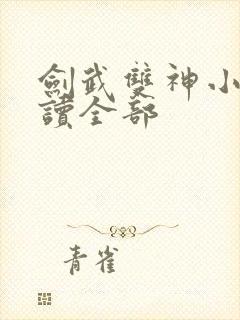 劍武雙神小
讀全部
青雀